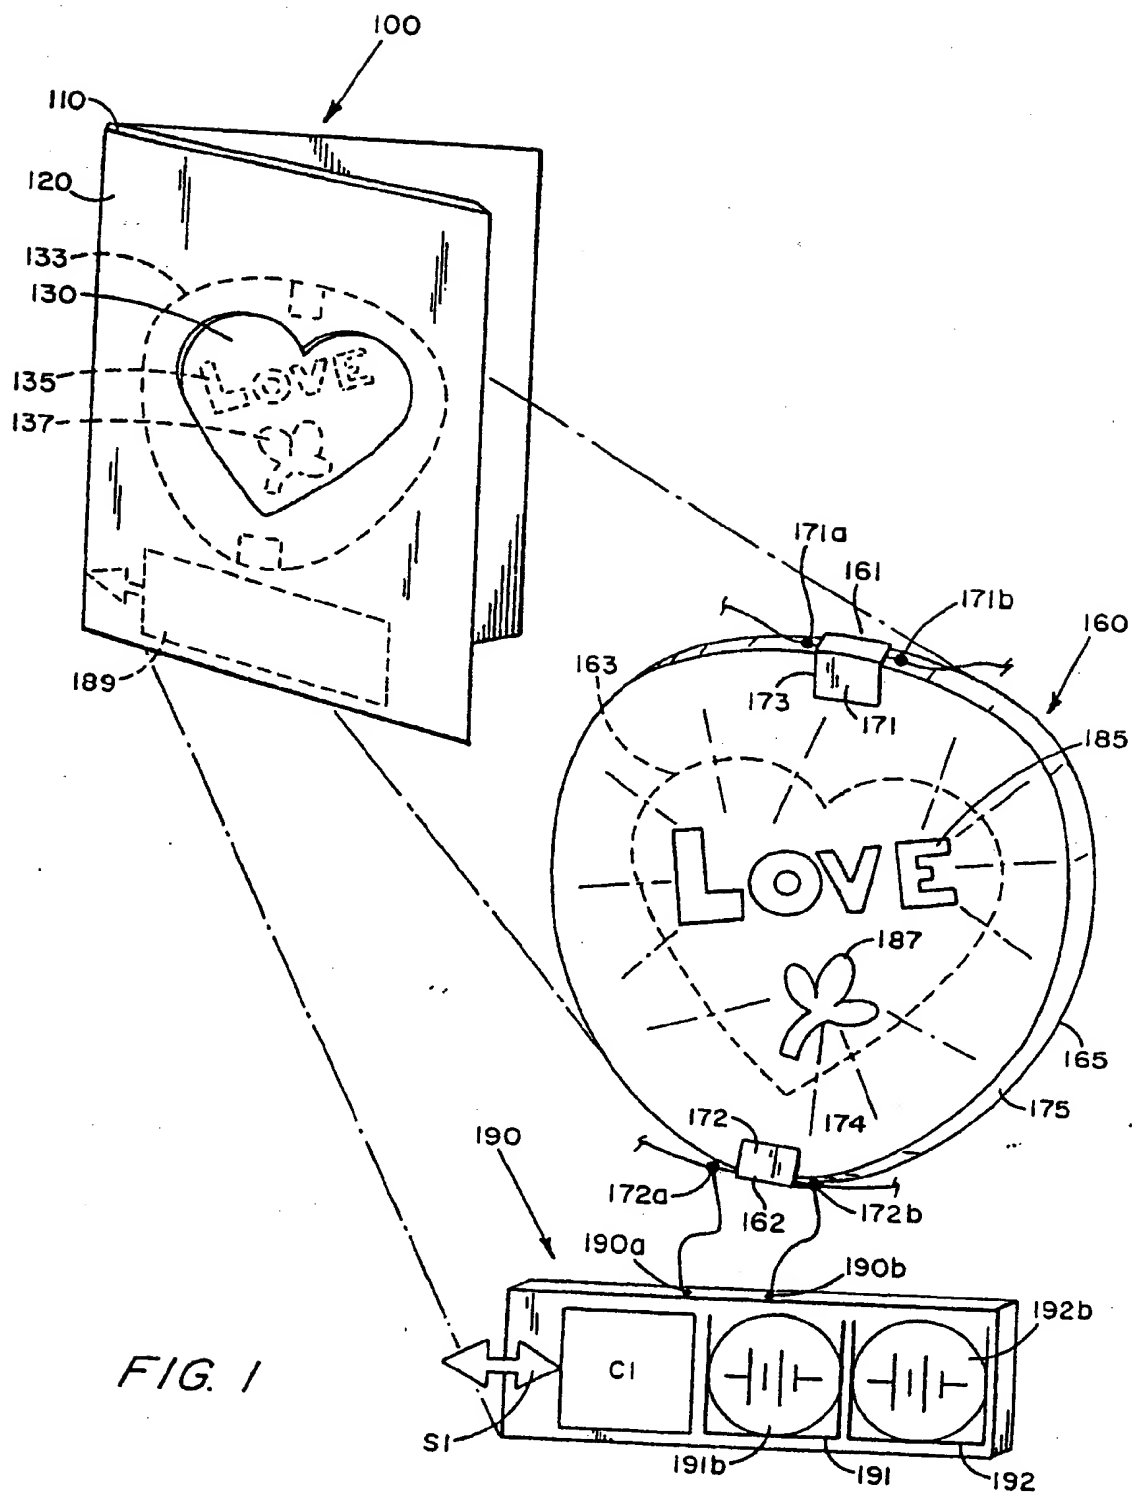 100
110
120
133
130
135
LOVE
137
189
171a
161
171b
160
163
173
171
185
LOVE
187
165
175
172
174
190
172a
162
172b
190a
190b
192b
C1
FIG. 1
S1
191b
191
192